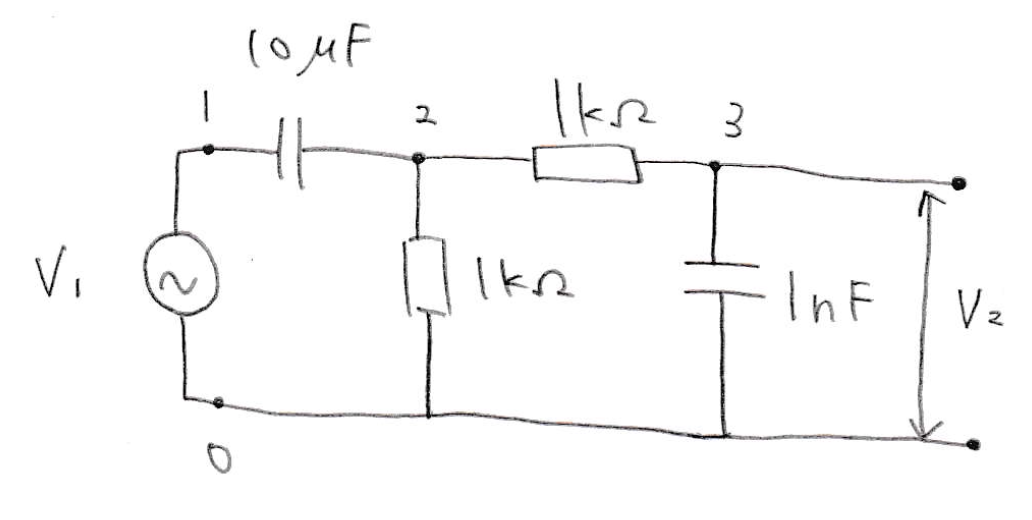 10 μF
1
2
1kΩ
3
V1
1kΩ
1nF
V2
0